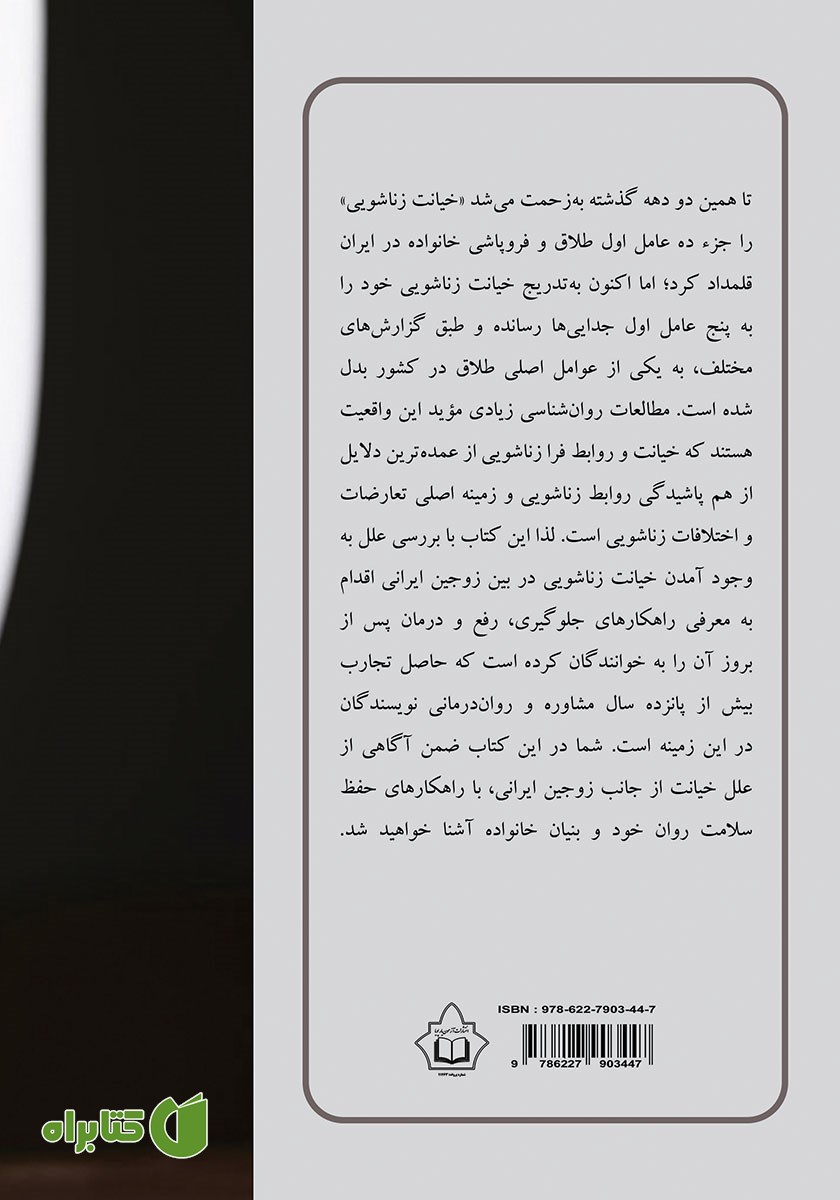 تا همین دو دهه گذشته به‌زحمت می‌شد «خیانت زناشویی»
را جزء ده عامل اول طلاق و فروپاشی خانواده در ایران
قلمداد کرد؛ اما اکنون به‌تدریج خیانت زناشویی خود را
به پنج عامل اول جدایی‌ها رسانده و طبق گزارش‌های
مختلف، به یکی از عوامل اصلی طلاق در کشور بدل
شده است. مطالعات روان‌شناسی زیادی مؤید این واقعیت
هستند که خیانت و روابط فرا زناشویی از عمده‌ترین دلایل
از هم پاشیدگی روابط زناشویی و زمینه اصلی تعارضات
و اختلافات زناشویی است. لذا این کتاب با بررسی علل به
وجود آمدن خیانت زناشویی در بین زوجین ایرانی اقدام
به معرفی راهکارهای جلوگیری، رفع و درمان پس از
بروز آن را به خوانندگان کرده است که حاصل تجارب
بیش از پانزده سال مشاوره و روان‌درمانی نویسندگان
در این زمینه است. شما در این کتاب ضمن آگاهی از
علل خیانت از جانب زوجین ایرانی، با راهکارهای حفظ
سلامت روان خود و بنیان خانواده آشنا خواهید شد.
ISBN : 978-622-7903-44-7
9 786227 903447
کتابراه